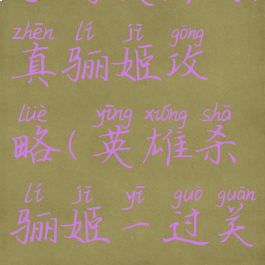 zhēn lí jī gōng
真骊姬攻
lüè yīng xióng shā
略(英雄杀
lí jī yī guò guān
骊姬一过关